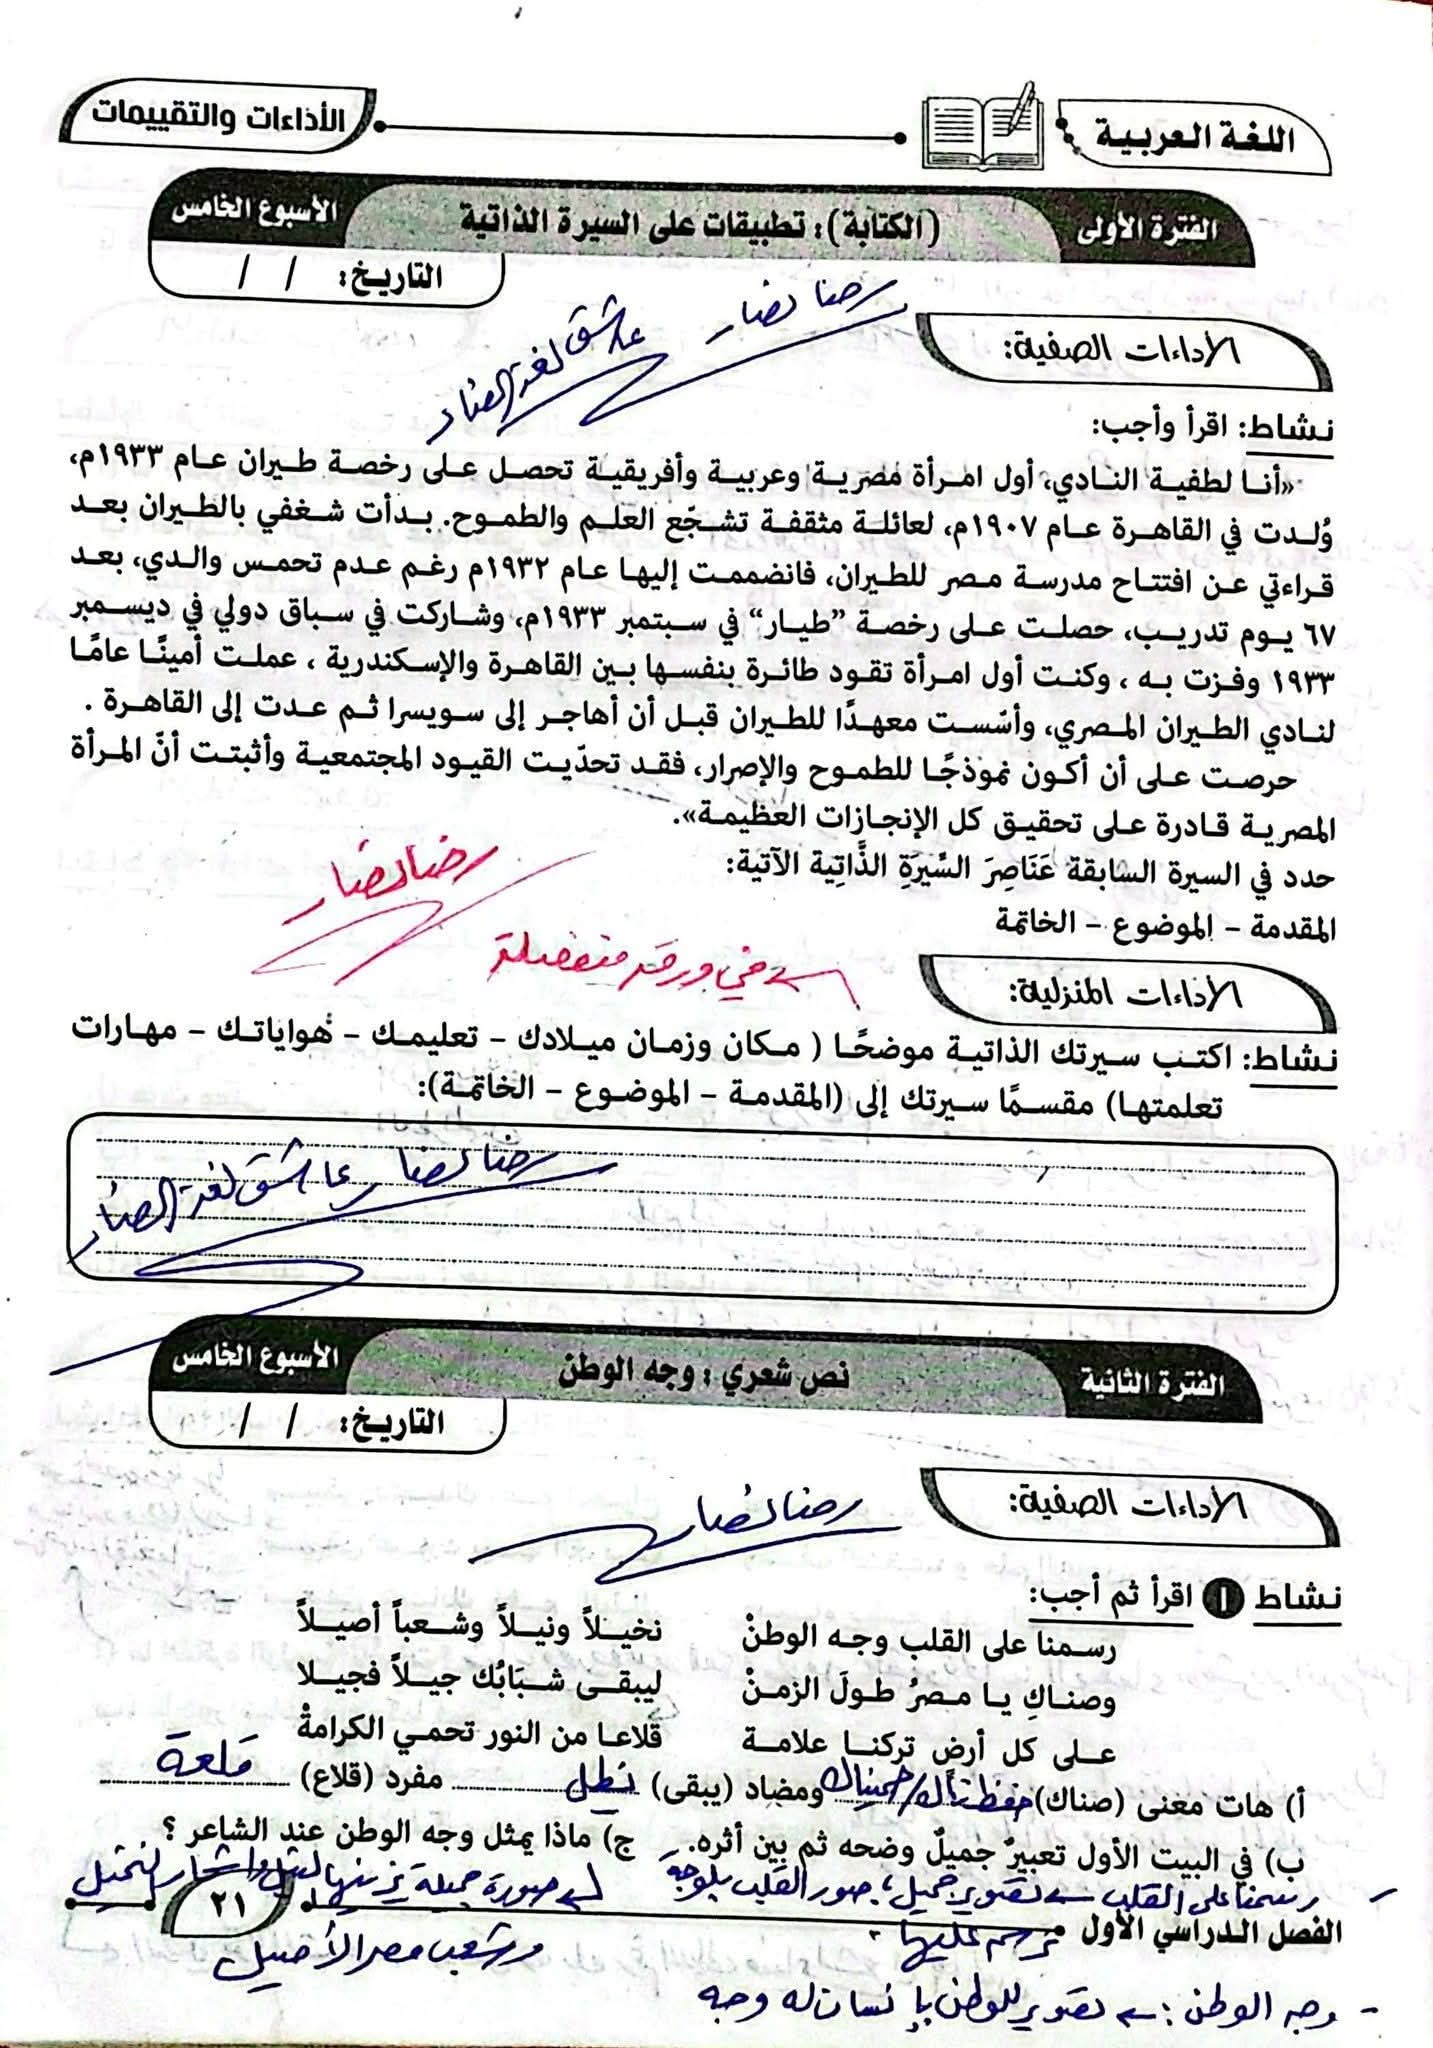 اللغة العربية
الأداءات والتقييمات
الفترة الأولى
(الكتابة): تطبيقات على السيرة الذاتية
الأسبوع الخامس
التاريخ: / /
رضا نصار
عاشق لغة الضاد
الأداءات الصفية:
نشاط: اقرأ وأجب:
«أنا لطفية النادي، أول امرأة مصرية وعربية وأفريقية تحصل على رخصة طيران عام ١٩٣٣م،
وُلدت في القاهرة عام ١٩٠٧م، لعائلة مثقفة تشجّع العلم والطموح. بدأت شغفي بالطيران بعد
قراءتي عن افتتاح مدرسة مصر للطيران، فانضممت إليها عام ١٩٣٢م رغم عدم تحمس والدي، بعد
٦٧ يوم تدريب، حصلت على رخصة "طيار" في سبتمبر ١٩٣٣م، وشاركت في سباق دولي في ديسمبر
١٩٣٣ وفزت به ، وكنت أول امرأة تقود طائرة بنفسها بين القاهرة والإسكندرية ، عملت أمينًا عامًا
لنادي الطيران المصري، وأسّست معهدًا للطيران قبل أن أهاجر إلى سويسرا ثم عدت إلى القاهرة .
حرصت على أن أكون نموذجًا للطموح والإصرار، فقد تحدّيت القيود المجتمعية وأثبتت أنّ المرأة
المصرية قادرة على تحقيق كل الإنجازات العظيمة».
حدد في السيرة السابقة عَنَاصِرَ السِّيرَةِ الذَّاتِية الآتية:
رضا نصار
المقدمة – الموضوع – الخاتمة
في ورقة منفصلة
الأداءات المنزلية:
نشاط: اكتب سيرتك الذاتية موضحًا ( مكان وزمان ميلادك – تعليمك – هواياتك – مهارات
تعلمتها) مقسمًا سيرتك إلى (المقدمة – الموضوع – الخاتمة):
رضا نصار عاشق لغة الضاد
الفترة الثانية
نص شعري : وجه الوطن
الأسبوع الخامس
التاريخ: / /
الأداءات الصفية:
رضا نصار
نشاط ١ اقرأ ثم أجب:
رسمنا على القلب وجه الوطنْ نخيلاً ونيلاً وشعباً أصيلاً
وصناكِ يا مصرُ طولَ الزمنْ ليبقى شبَابُك جيلاً فجيلا
على كل أرضٍ تركنا علامة قلاعا من النور تحمي الكرامةْ
أ) هات معنى (صناك) حفظناك/حميناك ومضاد (يبقى) نطل مفرد (قلاع) قلعة
ب) في البيت الأول تعبيرٌ جميلٌ وضحه ثم بين أثره. ج) ماذا يمثل وجه الوطن عند الشاعر ؟
- رسمنا على القلب ← تصوير جميل، صور القلب بلوحة صورة جميلة يزينها النيل وأشجار النخيل
نرسم عليها
وشعب مصر الأصيل
الفصل الدراسي الأول
٢١
- وجه الوطن : ← تصوير للوطن بإنسان له وجه